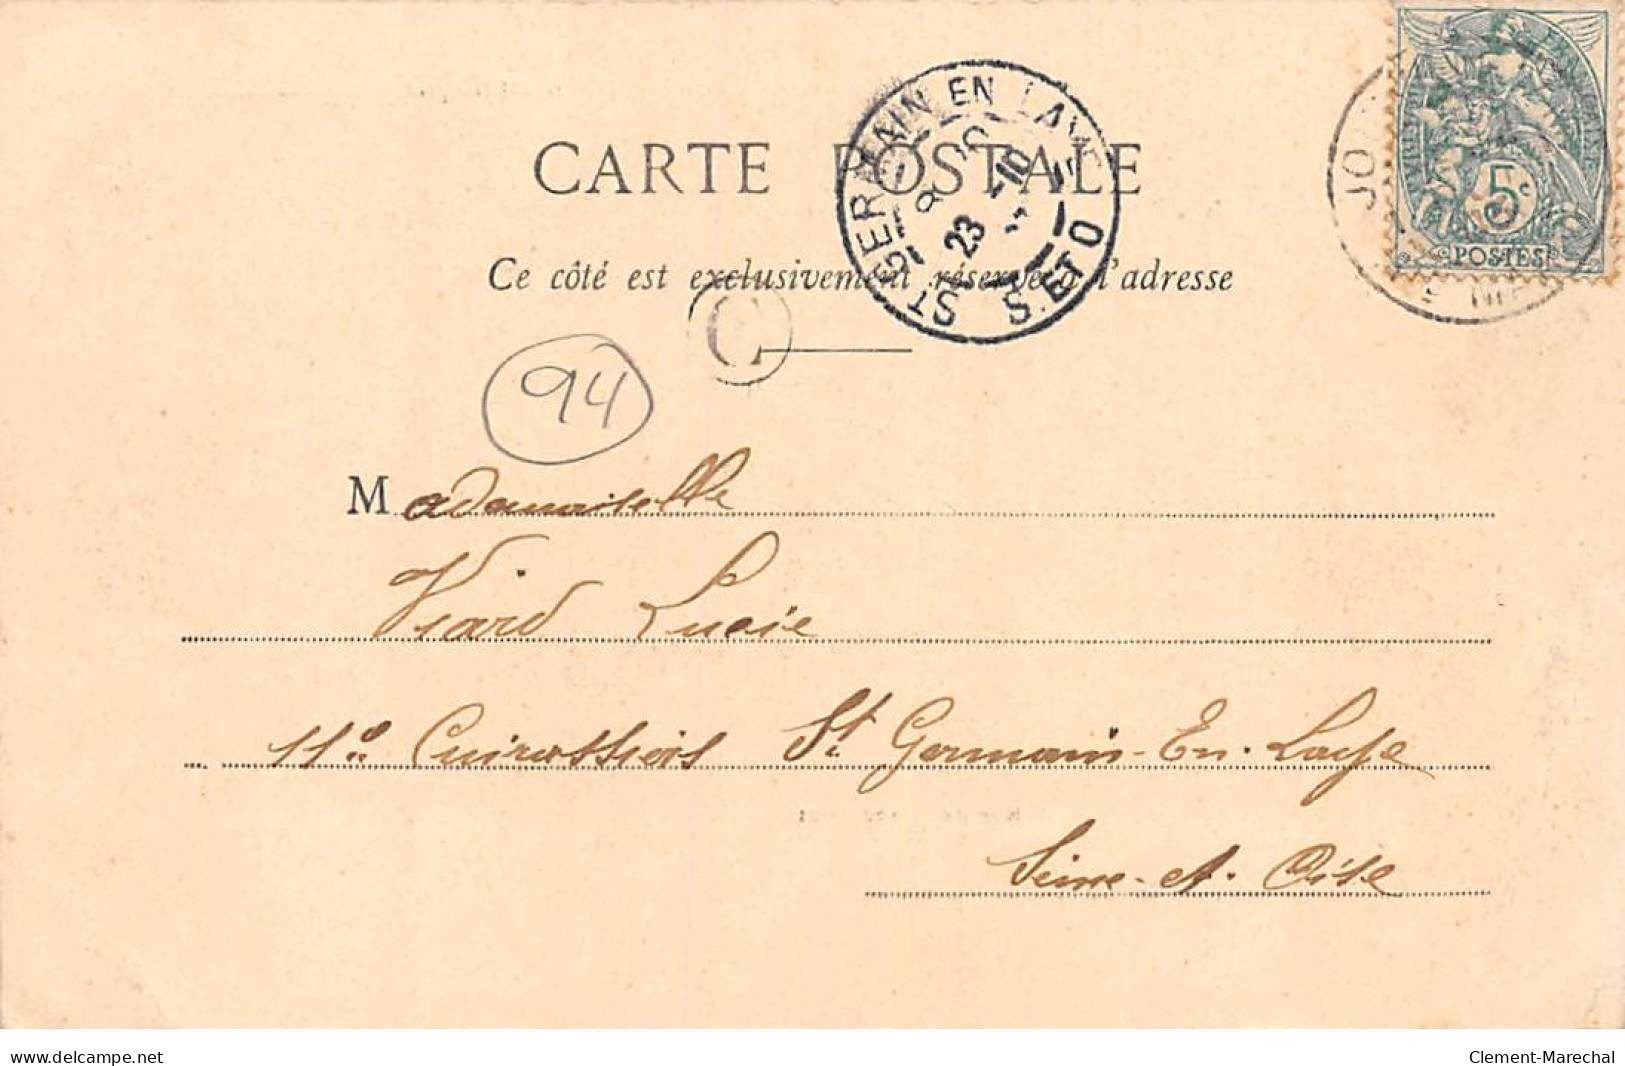 CARTE POSTALE
Ce côté est exclusivement réservé à l'adresse
ST GERMAIN EN LAYE
S. ET O
23
5c
POSTES
C
94
Mademoiselle
Viard Lucie
11e Cuirassiers St Germain-En-Laye
Seine-et-Oise
delcampe.net
Clement-Marechal